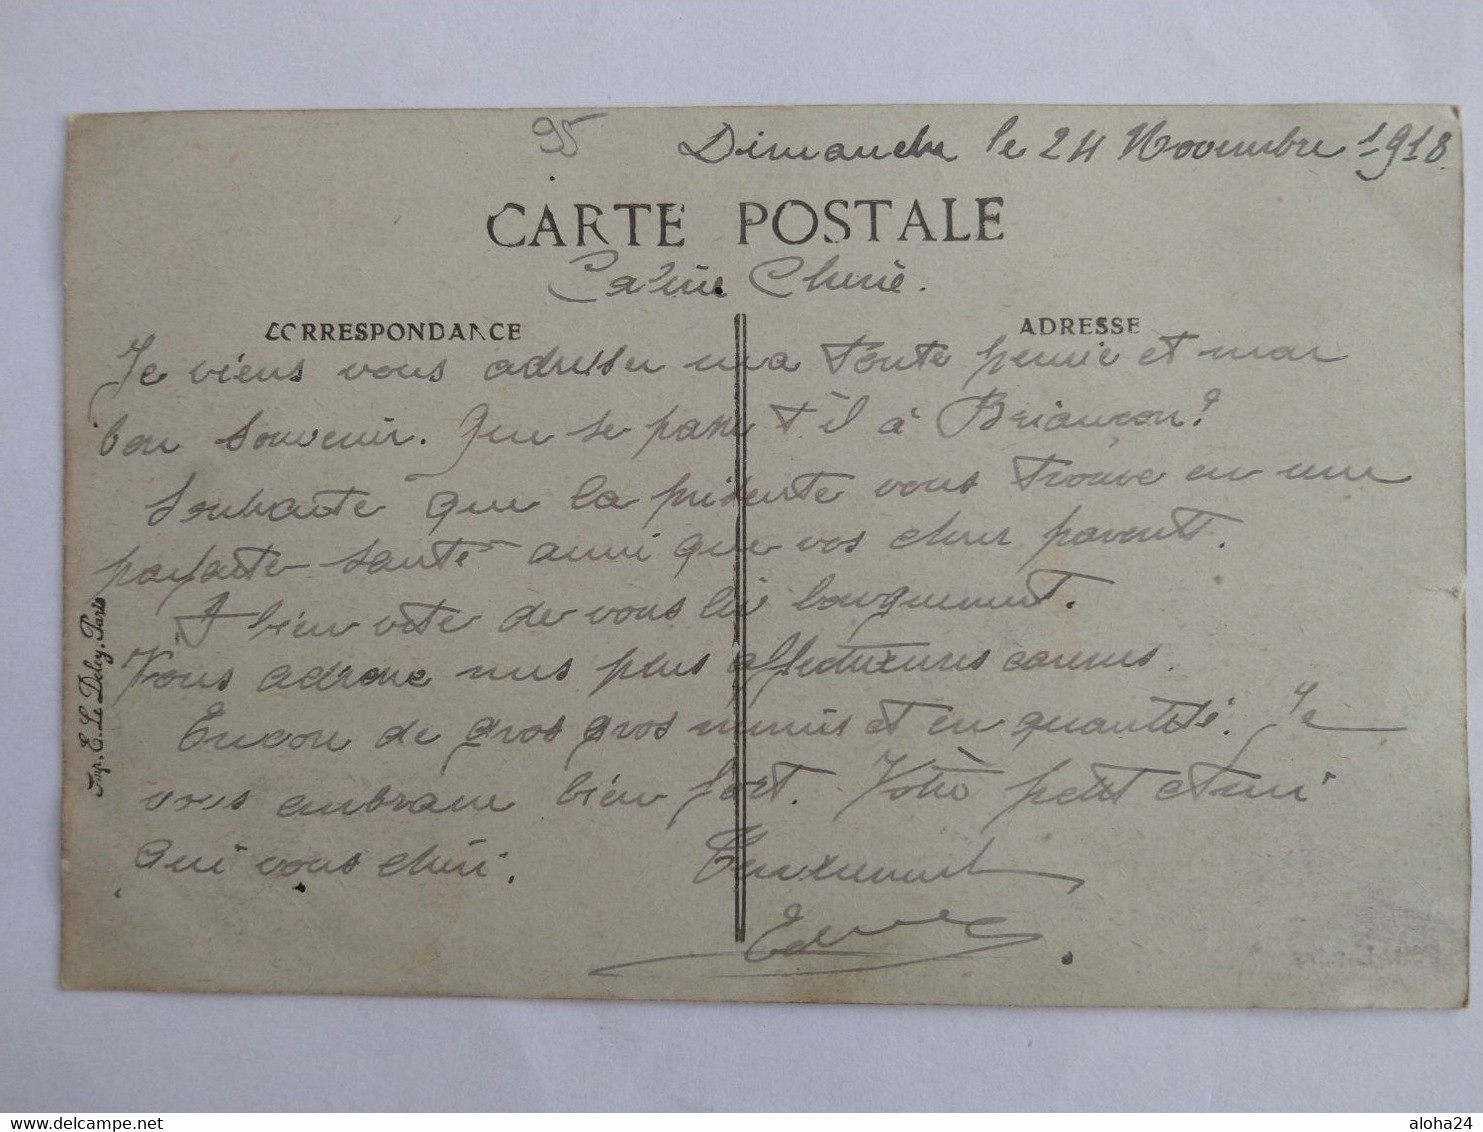 95
Dimanche le 24 Novembre 1918.
CARTE POSTALE
Chérie.
CORRESPONDANCE
ADRESSE
Je viens vous adresser ma Toute pensée et mon
bon souvenir. Que se passe t'il à Briançon?
Souhaite que la présente vous Trouve en une
parfaite santé aussi que vos chers parents.
A bien vite de vous lire longuement.
Vous adresse mes plus affectueuses caresses.
Encore de gros gros mimis et en quantité. Je
vous embrasse bien fort. Votre petit
qui vous chéri.
Imp. E. Le Deley, Paris
www.delcampe.net
aloha24